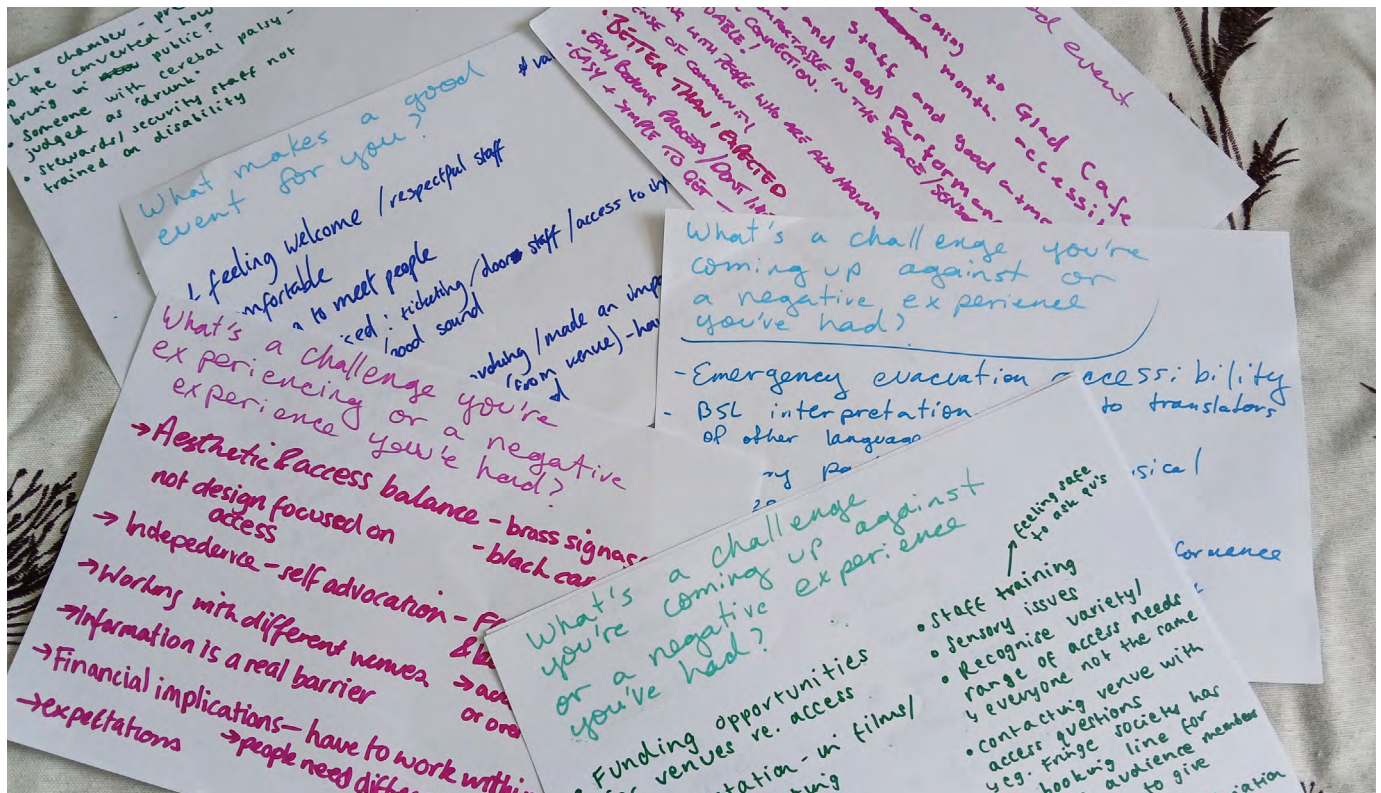 ch. chamber - pre
the converted - how
bring in public?
Someone with cerebral palsy -
judged as 'drunk'.
• stewards/security staff not
trained on disability
What makes a good
event for you?
feeling welcome / respectful staff
mfortable
to meet people
ised : ticketing / door staff / access to
good sound
volving / made an impa
(from venue) - hav
d event
coming to Glad Cafe
month. accessi
staff and good atmo
and good Performan
IN THE SPACE/SENSO
CONNECTION.
DABLE!
G WITH PEOPLE WHO ARE ALSO HAVING
ENSE OF COMMUNITY
• BETTER THAN I EXPECTED
• EASY BOOKING PROCESS / DON'T
• EASY + SIMPLE TO GET
What's a challenge you're
coming up against or
a negative experience
you've had?
- Emergency evacuation accessibility
- BSL interpretation to translators
of other language
sical
formance
What's a challenge you're
experiencing or a negative
experience you've had?
→ Aesthetic & access balance - brass signag
not design focused on - black car
access
→ Indepedence - self advocation -
→ Working with different venues
→ Information is a real barrier
→ Financial implications - have to work within
→ people need differ
→ expectations
What's a challenge
you're coming up against
or a negative experience
you've had?
Funding opportunities
for venues re. access
tation - in films/
feeling safe
to ask qu's
• staff training
• sensory issues
• Recognise variety/
range of access needs
↳ everyone not the same
• contacting venue with
access questions
↳ eg. Fringe society has
booking line for
audience members
to give